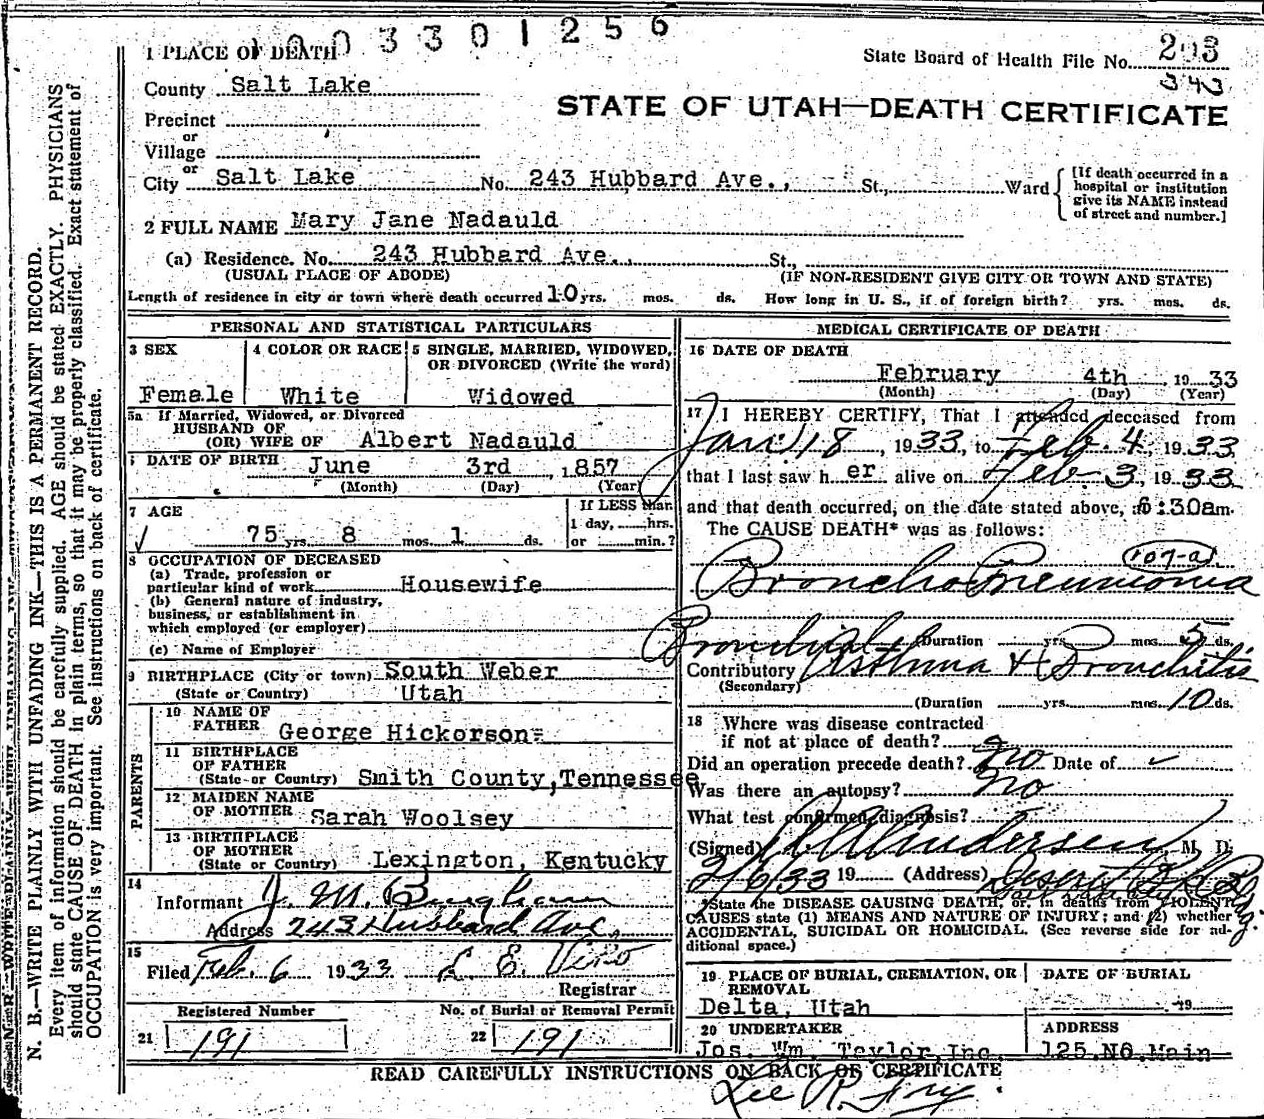 0 0 3 3 0 1 2 5 6
1 PLACE OF DEATH
State Board of Health File No. 203
343
County Salt Lake
STATE OF UTAH—DEATH CERTIFICATE
Precinct
or
Village
or
City Salt Lake No. 243 Hubbard Ave., St., Ward
[If death occurred in a hospital or institution give its NAME instead of street and number.]
2 FULL NAME Mary Jane Nadauld
(a) Residence. No. 243 Hubbard Ave., St.,
(USUAL PLACE OF ABODE) (IF NON-RESIDENT GIVE CITY OR TOWN AND STATE)
Length of residence in city or town where death occurred 10 yrs. mos. ds. How long in U. S., if of foreign birth? yrs. mos. ds.
PERSONAL AND STATISTICAL PARTICULARS
3 SEX
Female
4 COLOR OR RACE
White
5 SINGLE, MARRIED, WIDOWED, OR DIVORCED (Write the word)
Widowed
5a If Married, Widowed, or Divorced
HUSBAND OF
(OR) WIFE OF Albert Nadauld
DATE OF BIRTH June 3rd, 1857
(Month) (Day) (Year)
7 AGE
75 yrs. 8 mos. 1 ds.
If LESS than
1 day, hrs.
or min.?
8 OCCUPATION OF DECEASED
(a) Trade, profession or
particular kind of work Housewife
(b) General nature of industry,
business, or establishment in
which employed (or employer)
(c) Name of Employer
9 BIRTHPLACE (City or town) South Weber
(State or Country) Utah
PARENTS
10 NAME OF
FATHER George Hickerson
11 BIRTHPLACE
OF FATHER
(State or Country) Smith County, Tennessee
12 MAIDEN NAME
OF MOTHER Sarah Woolsey
13 BIRTHPLACE
OF MOTHER
(State or Country) Lexington, Kentucky
14
Informant J. M. Bingham
Address 243 Hubbard Ave,
15
Filed Feb. 6 1933 L. E. Viko
Registrar
Registered Number
21 191
No. of Burial or Removal Permit
22 191
MEDICAL CERTIFICATE OF DEATH
16 DATE OF DEATH
February 4th, 1933
(Month) (Day) (Year)
17 I HEREBY CERTIFY, That I attended deceased from
Jan 18, 1933, to Feb. 4, 1933
that I last saw her alive on Feb 3, 1933
and that death occurred, on the date stated above, at 6:30am.
The CAUSE DEATH* was as follows:
107-a
Broncho Pneumonia
(Duration yrs. mos. 5 ds.
Bronchial
Contributory Asthma & Bronchitis
(Secondary)
(Duration yrs. mos. 10 ds.
18 Where was disease contracted
if not at place of death?
Did an operation precede death? no Date of
Was there an autopsy? no
What test confirmed diagnosis?
(Signed) Anderson, M. D.
2/6/33 19 (Address) Deseret Bk Bldg.
*State the DISEASE CAUSING DEATH, or, in deaths from VIOLENT
CAUSES state (1) MEANS AND NATURE OF INJURY; and (2) whether
ACCIDENTAL, SUICIDAL OR HOMICIDAL. (See reverse side for ad-
ditional space.)
19 PLACE OF BURIAL, CREMATION, OR
REMOVAL
Delta, Utah
DATE OF BURIAL
19
20 UNDERTAKER
Jos. Wm. Taylor, Inc.
ADDRESS
125 No Main
READ CAREFULLY INSTRUCTIONS ON BACK OF CERTIFICATE
Lee R. Fry.
N. B.—WRITE PLAINLY WITH UNFADING INK—THIS IS A PERMANENT RECORD.
Every item of information should be carefully supplied. AGE should be stated EXACTLY. PHYSICIANS
should state CAUSE OF DEATH in plain terms, so that it may be properly classified. Exact statement of
OCCUPATION is very important. See instructions on back of certificate.